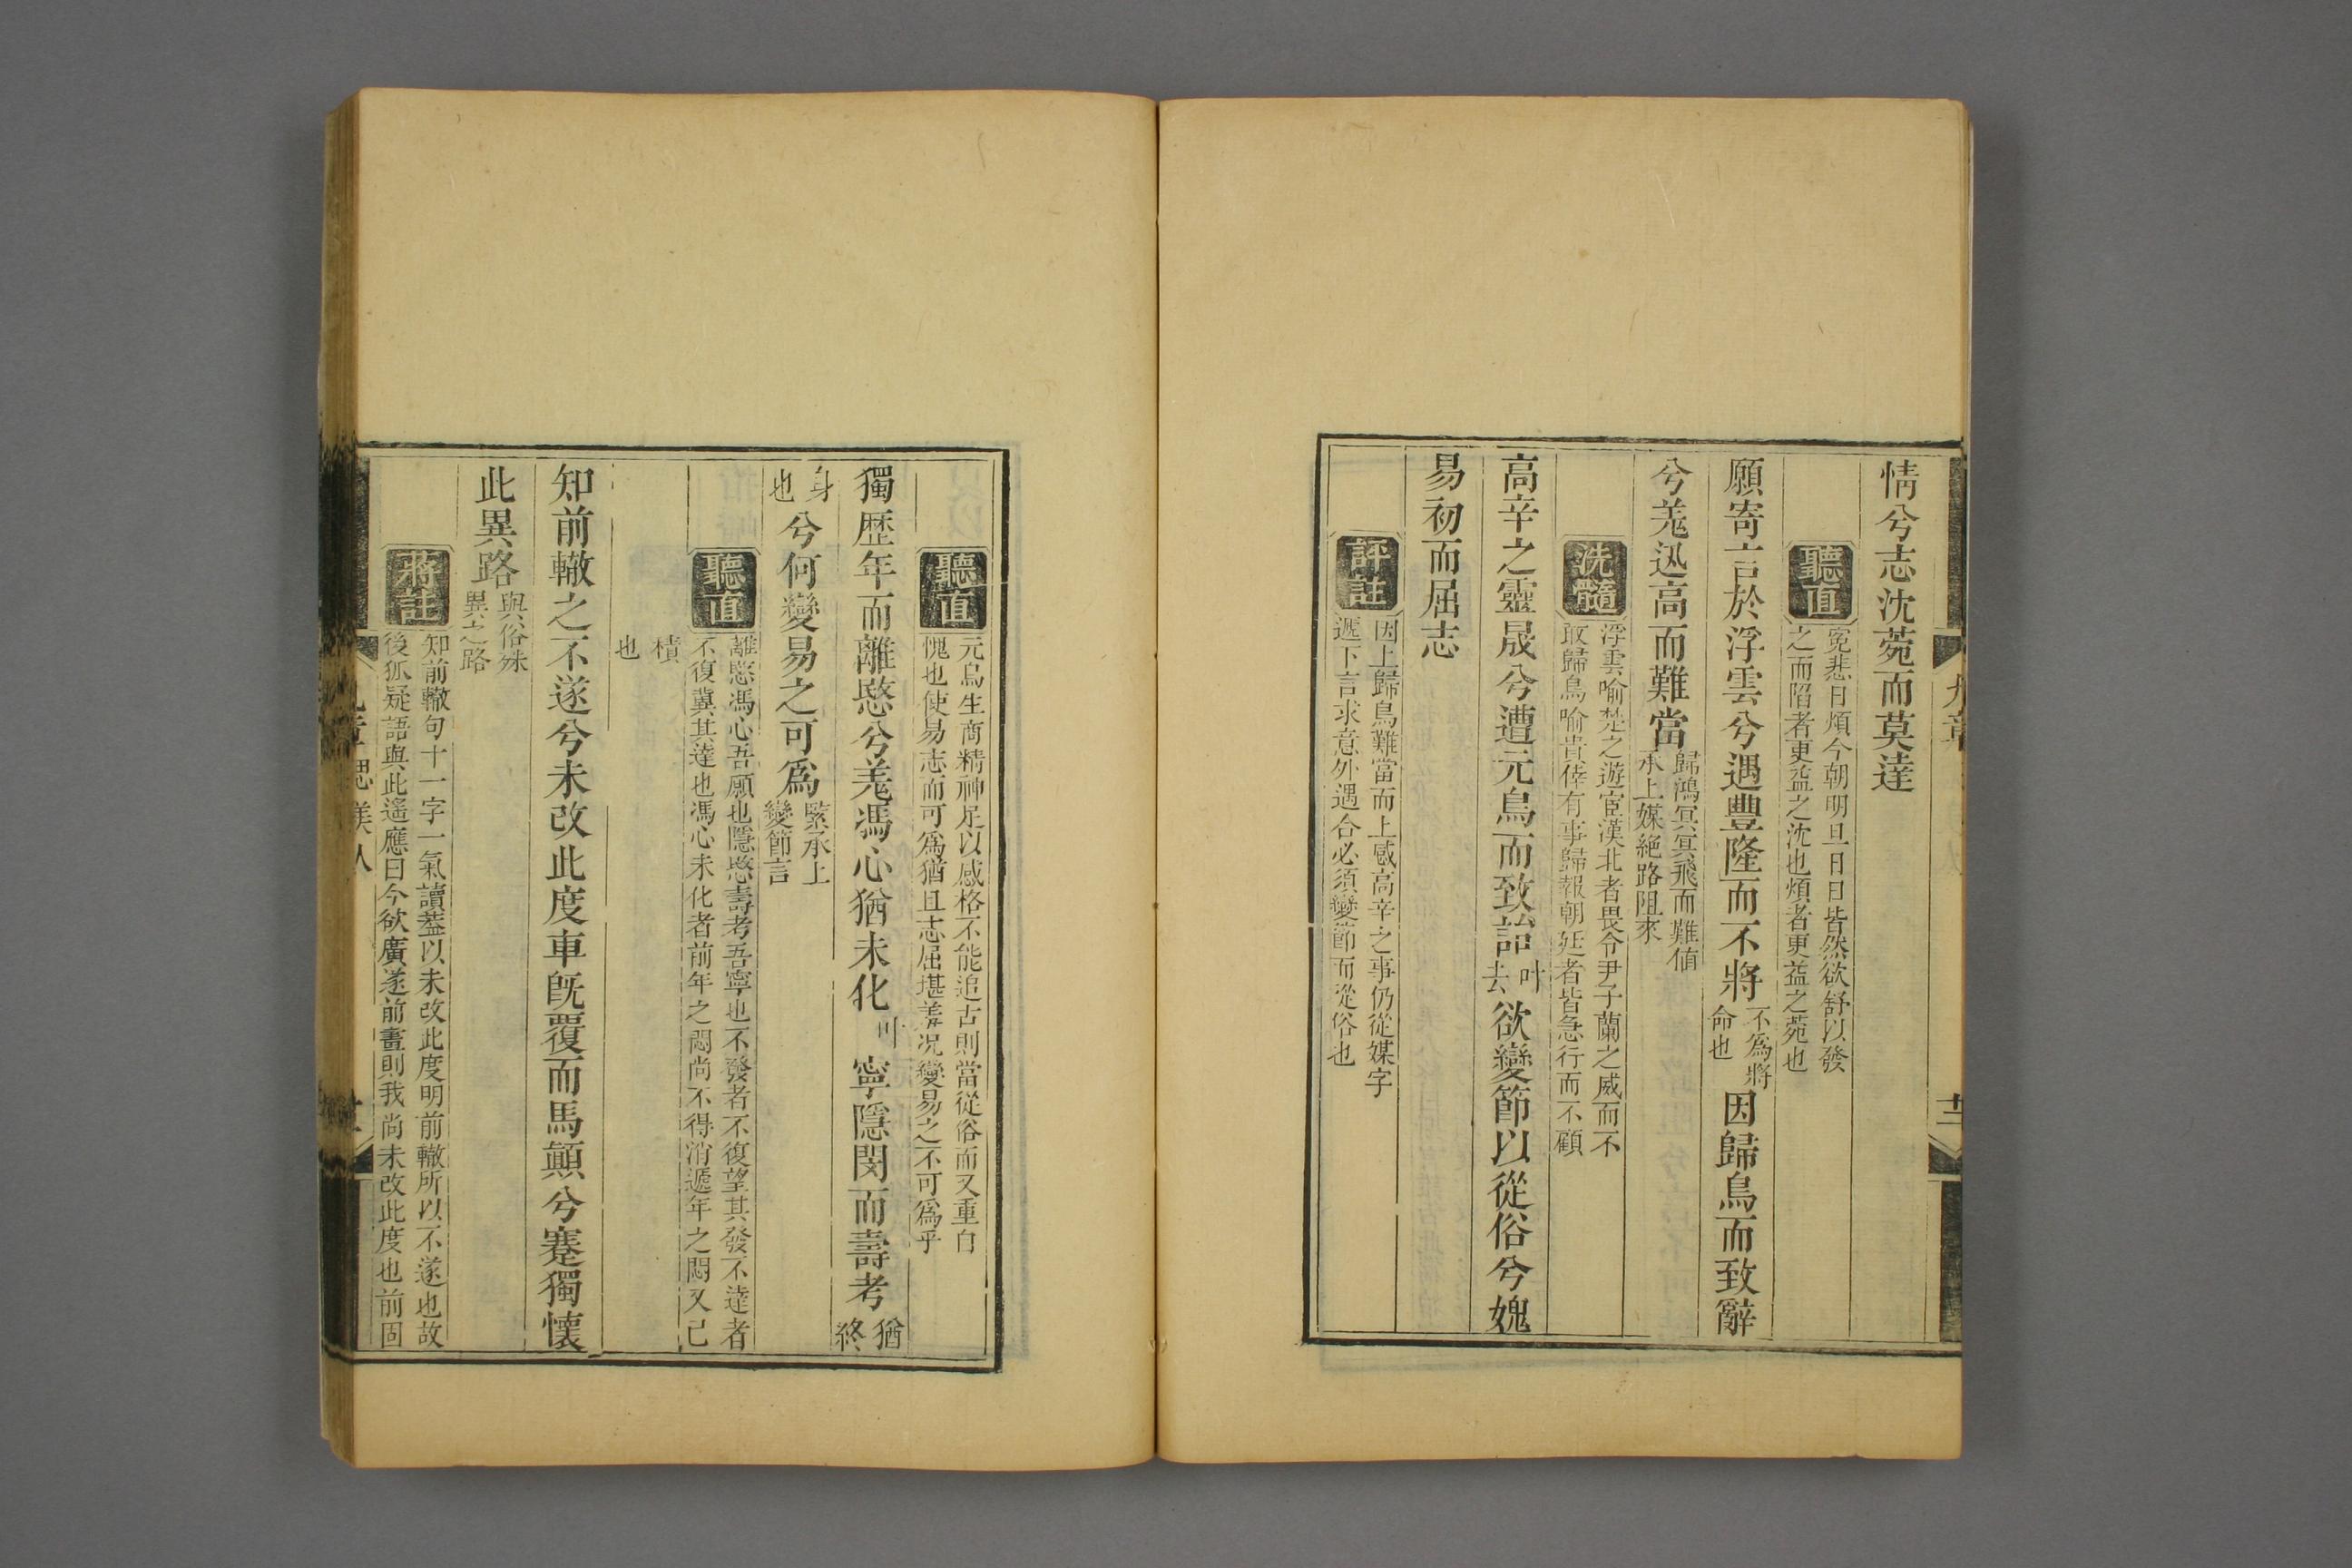 情兮志沈菀而莫達
聽直
冤悲日煩今朝明旦日日皆然欲舒以發
之而陷者更益之沈也煩者更益之菀也
願寄言於浮雲兮遇豐隆而不將
不為將
命也
因歸鳥而致辭
兮羌迅高而難當
歸鴻冥冥飛而難值
承上媒絶路阻來
洗髓
浮雲喻楚之遊宦漢北者畏令尹子蘭之威而不
敢歸鳥喻貴倖有事歸報朝廷者皆急行而不顧
高辛之靈晟兮遭元鳥而致詒
叶
去
欲變節以從俗兮媿
易初而屈志
評註
因上歸鳥難當而上感高辛之事仍從媒字
遞下言求意外遇合必須變節而從俗也
九章
聽直
元鳥生商精神足以感格不能追古則當從俗而又重自
愧也使易志而可為猶且志屈堪羞况變易之不可為乎
獨歷年而離愍兮羌馮心猶未化
叶
寧隱閔而壽考
猶
終
身
也
兮何變易之可為
緊承上
變節言
聽直
離愍馮心吾願也隱愍壽考吾寧也不發者不復望其發不達者
不復冀其達也馮心未化者前年之悶尚不得消遞年之悶又已
積
也
知前轍之不遂兮未改此度車旣覆而馬顚兮蹇獨懷
此異路
與俗殊
異之路
蔣註
知前轍句十一字一氣讀葢以未改此度明前轍所以不遂也故
後狐疑語與此遙應曰今欲廣遂前畫則我尚未改此度也前固